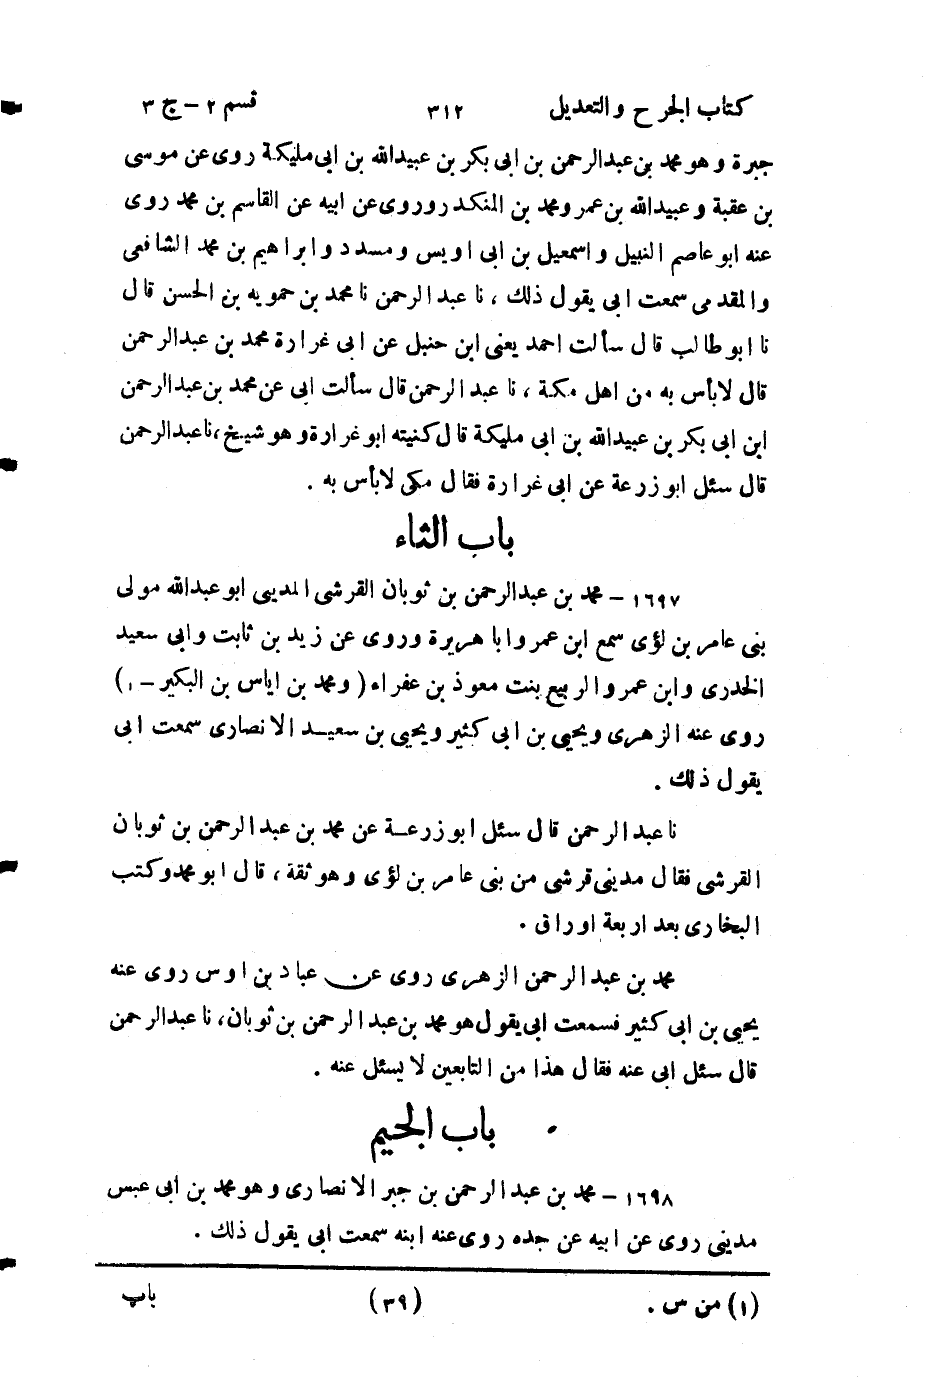 كتاب الجرح والتعديل ٣١٢ قسم ٢ - ج ٣
جبرة وهو محمد بن عبدالرحمن بن ابى بكر بن عبيدالله بن ابى مليكة روى عن موسى
بن عقبة وعبيدالله بن عمر ومحمد بن المنكدر وروى عن ابيه عن القاسم بن محمد روى
عنه ابو عاصم النبيل واسمعيل بن ابى اويس ومسدد وابراهيم بن محمد الشافعى
والمقدمى سمعت ابى يقول ذلك ، نا عبد الرحمن نا محمد بن حمويه بن الحسن قال
نا ابو طالب قال سألت احمد يعنى ابن حنبل عن ابى غرارة محمد بن عبدالرحمن
قال لابأس به من اهل مكة ، نا عبد الرحمن قال سألت ابى عن محمد بن عبدالرحمن
ابن ابى بكر بن عبيدالله بن ابى مليكة قال كنيته ابو غرارة وهو شيخ ، نا عبدالرحمن
قال سئل ابو زرعة عن ابى غرارة فقال مكى لابأس به .
باب الثاء
١٦٩٧ - محمد بن عبدالرحمن بن ثوبان القرشى المدينى ابو عبدالله مولى
بنى عامر بن لؤى سمع ابن عمر وابا هريرة وروى عن زيد بن ثابت وابى سعيد
الخدرى وابن عمر والربيع بنت معوذ بن عفراء ( ومحمد بن اياس بن البكير - ١ )
روى عنه الزهرى ويحيى بن ابى كثير ويحيى بن سعيد الانصارى سمعت ابى
يقول ذلك .
نا عبد الرحمن قال سئل ابو زرعة عن محمد بن عبد الرحمن بن ثوبان
القرشى فقال مدينى قرشى من بنى عامر بن لؤى وهو ثقة ، قال ابو محمد وكتب
البخارى بعد اربعة اوراق .
محمد بن عبد الرحمن الزهرى روى عن عباد بن اوس روى عنه
يحيى بن ابى كثير فسمعت ابى يقول هو محمد بن عبد الرحمن بن ثوبان ، نا عبدالرحمن
قال سئل ابى عنه فقال هذا من التابعين لا يسئل عنه .
باب الجيم
١٦٩٨ - محمد بن عبد الرحمن بن جبر الانصارى وهو محمد بن ابى عبس
مدينى روى عن ابيه عن جده روى عنه ابنه سمعت ابى يقول ذلك .
(١) من س . (٣٩) باب